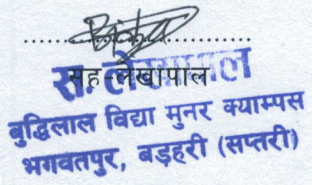 सह-लेखापाल
स. लेखापाल
बुद्धिलाल विद्या मुनर क्याम्पस
भगवतपुर, बड़हरी (सप्तरी)